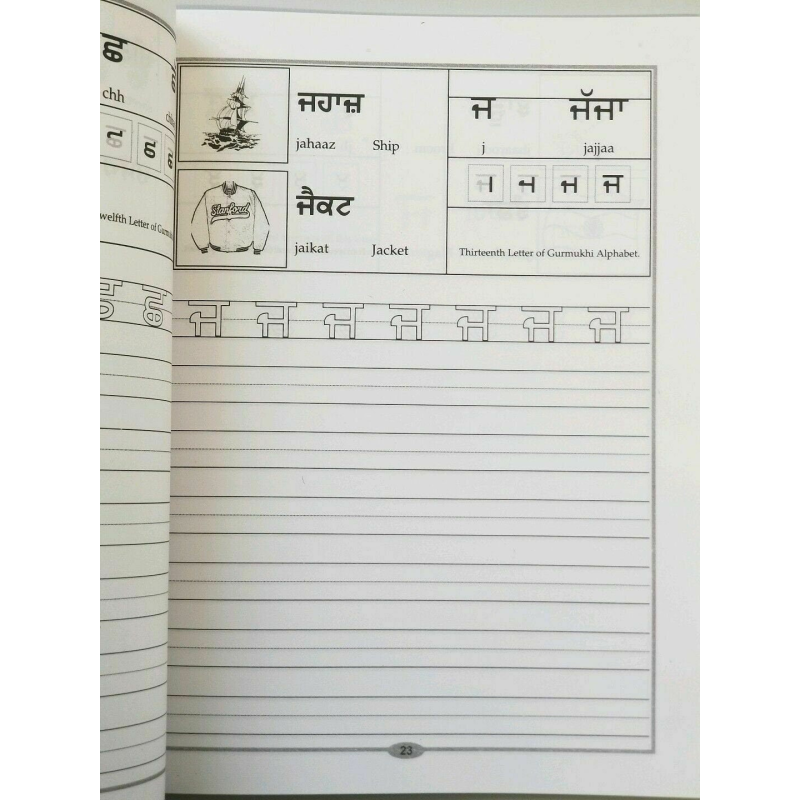 ਛ
chh
ਛ
welfth Letter of Gurmukhi
ਛ
ਜਹਾਜ਼
jahaaz Ship
Stanford
ਜੈਕਟ
jaikat Jacket
ਜ ਜੱਜਾ
j jajjaa
ਜ
Thirteenth Letter of Gurmukhi Alphabet.
ਜ ਜ ਜ ਜ ਜ ਜ ਜ
23